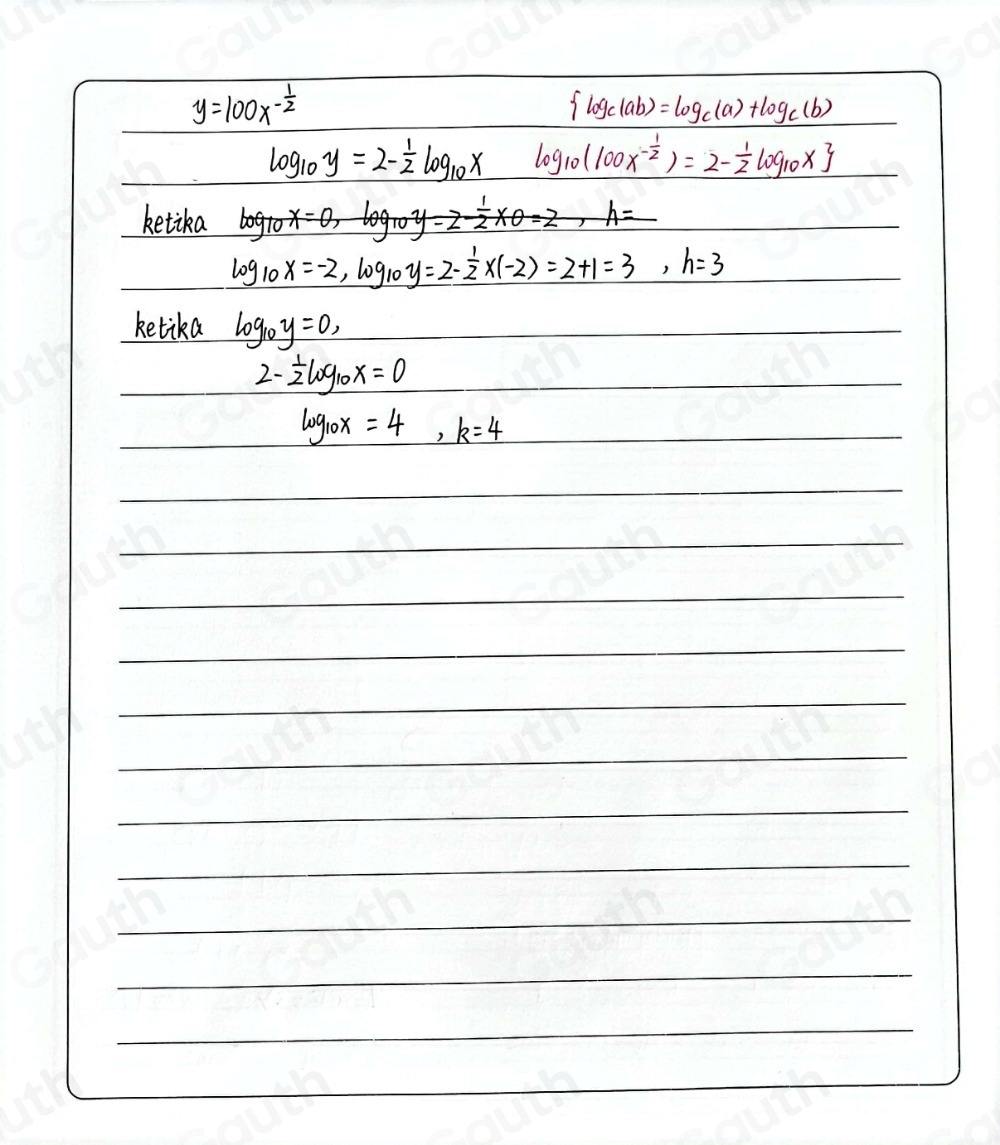 y=100x^{-\frac{1}{2}} {log_c(ab)=log_c(a)+log_c(b)
log₁₀y=2-\frac{1}{2}log₁₀x log₁₀(100x^{-\frac{1}{2}})=2-\frac{1}{2}log₁₀x}
ketika log₁₀x=0, log₁₀y=2-\frac{1}{2}×0=2, h=
log₁₀x=-2, log₁₀y=2-\frac{1}{2}×(-2)=2+1=3, h=3
ketika log₁₀y=0,
2-\frac{1}{2}log₁₀x=0
log₁₀x=4, k=4